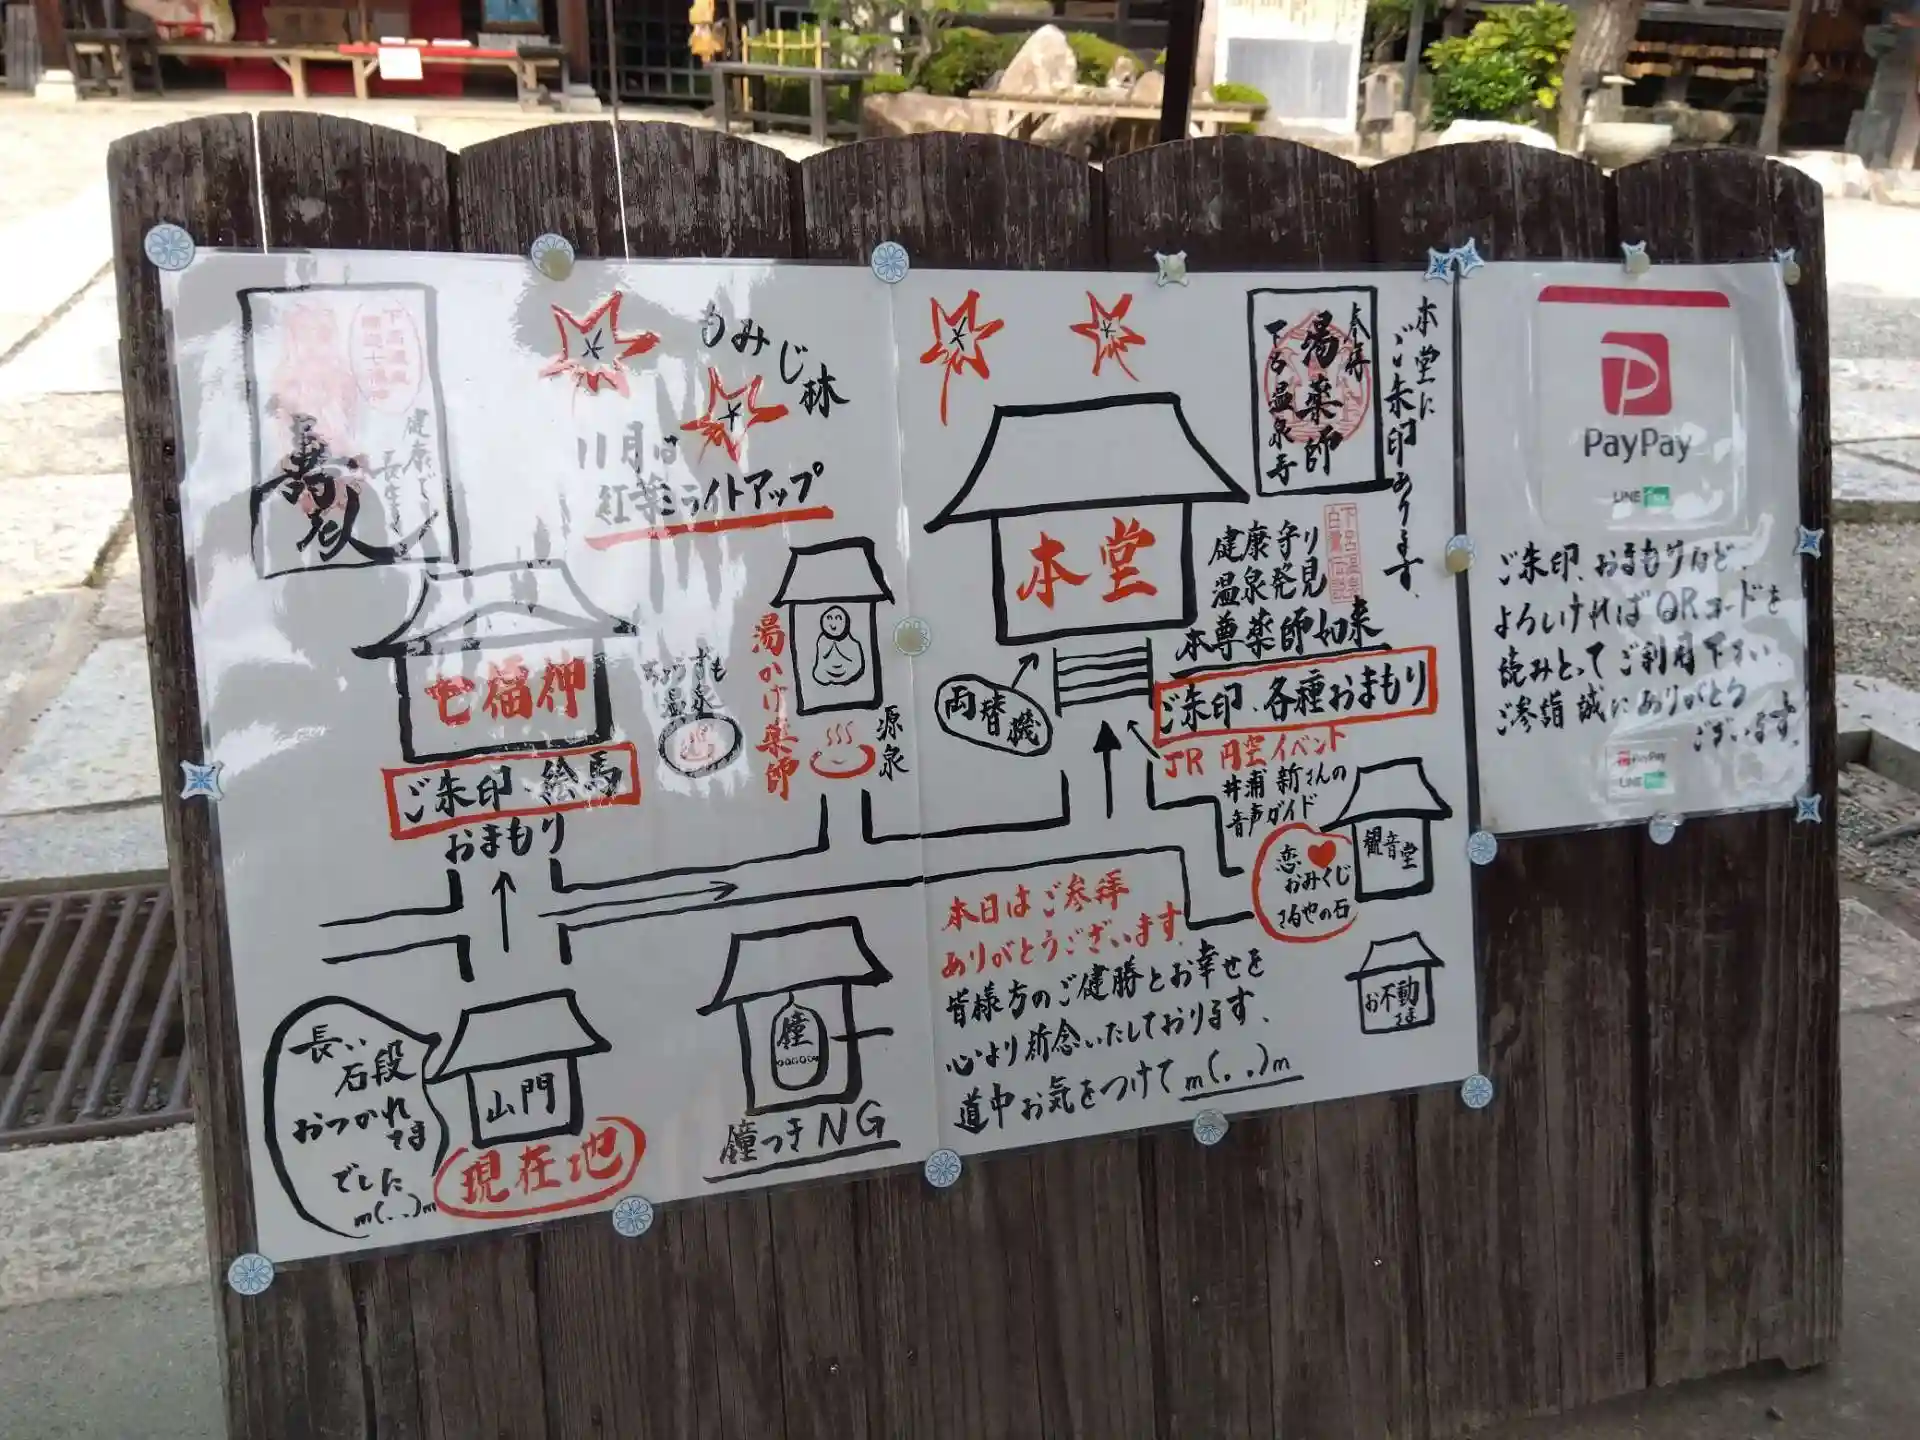 もみじ林
11月は
紅葉ライトアップ
健康で
長生き
七福神
ご朱印・絵馬
おまもり
ちょうずも
温泉
湯かけ薬師
源泉
本堂
両替機
奉拝
湯薬師
下呂温泉寺
本堂に
ご朱印あります。
健康守り
温泉発見
下呂温泉
白鷺伝説
本尊薬師如来
ご朱印、各種おまもり
JR 円空イベント
井浦 新さんの
音声ガイド
観音堂
恋
おみくじ
さるやの石
お不動
さま
長い
石段
おつかれ
さま
でした
m(..)m
山門
現在地
鐘
鐘つきNG
本日はご参拝
ありがとうございます。
皆様方のご健勝とお幸せを
心より祈念いたしております。
道中お気をつけて m(..)m
PayPay
LINE
ご朱印、おまもりなど、
よろしければQRコードを
読みとってご利用下さい
ご参詣 誠にありがとう
ございます。
PayPay
LINE